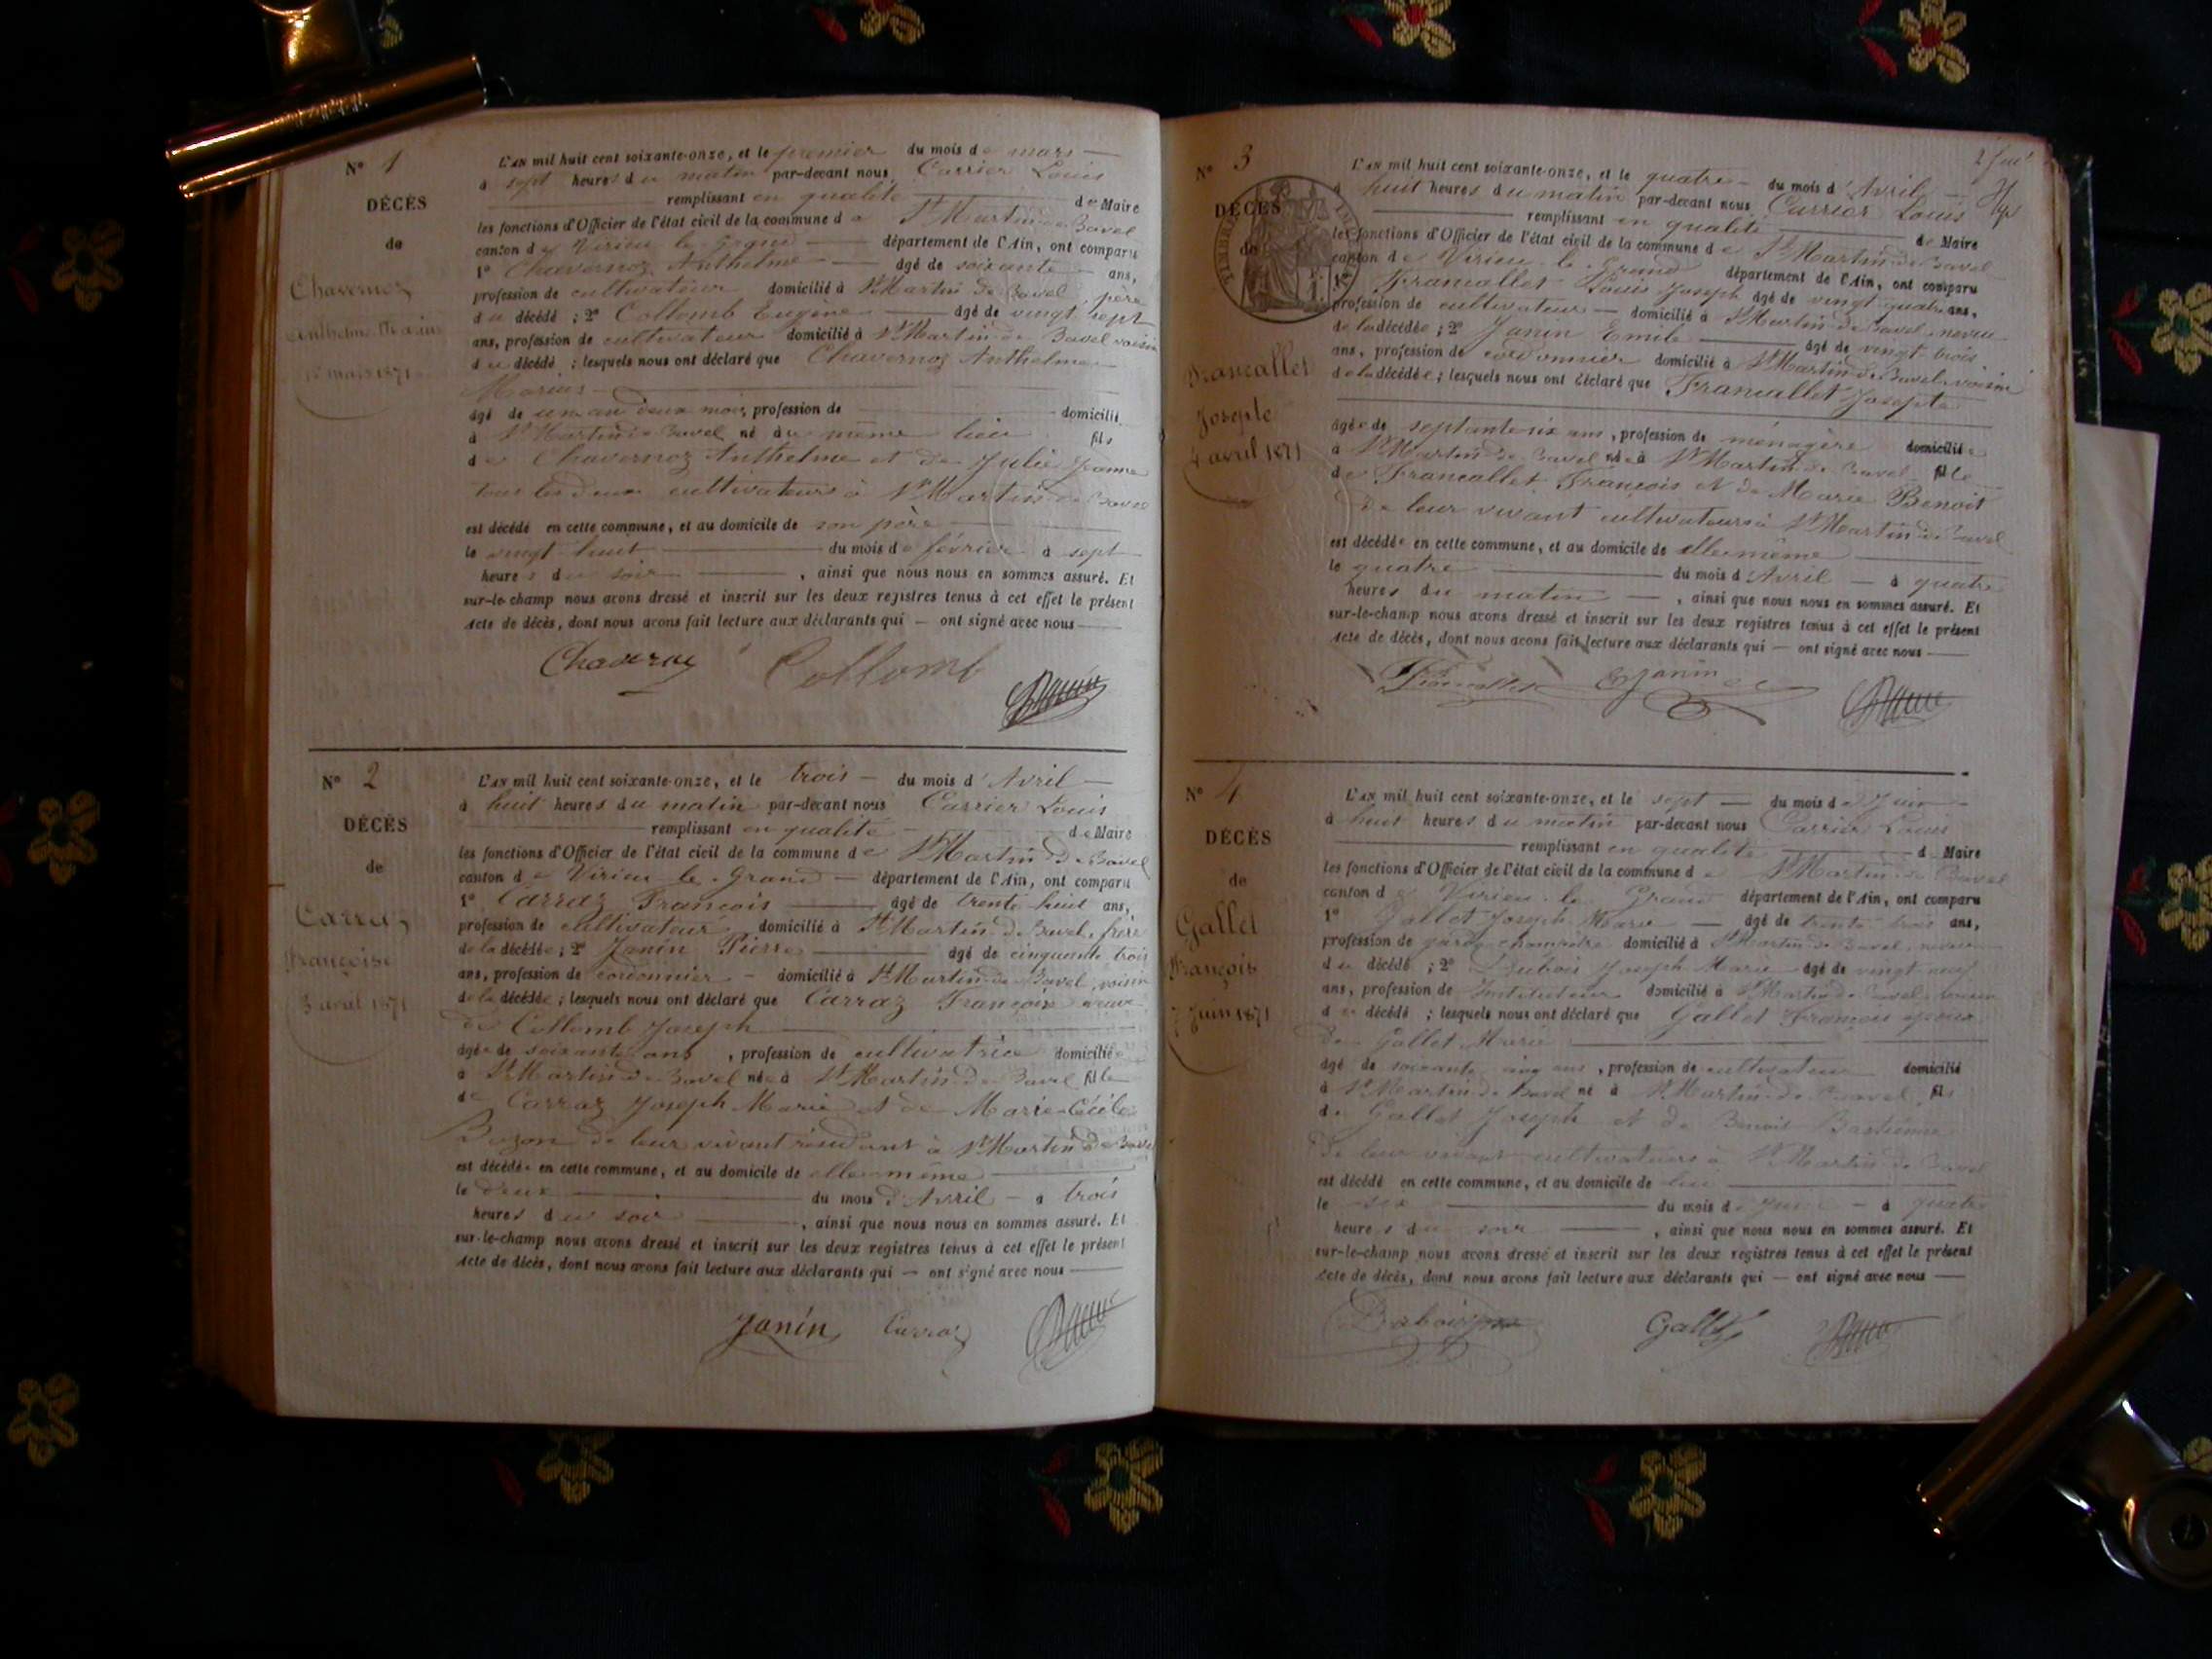 N° 1
DÉCÈS
de
Chavernoz
Anthelme Marius
1er mars 1871
L'AN mil huit cent soixante-onze, et le premier du mois de mars
à sept heures du matin par-devant nous Carrier Louis
remplissant en qualité de Maire
les fonctions d'Officier de l'état civil de la commune de St Martin de Bavel
canton de Virieu le Grand département de l'Ain, ont comparu
1° Chavernoz Anthelme âgé de soixante ans,
profession de cultivateur domicilié à St Martin de Bavel, père
du décédé ; 2° Collomb Eugène âgé de vingt sept
ans, profession de cultivateur domicilié à St Martin de Bavel voisin
du décédé ; lesquels nous ont déclaré que Chavernoz Anthelme
Marius
âgé de un an deux mois, profession de domicilié
à St Martin de Bavel né au même lieu fils
de Chavernoz Anthelme et de Julie Jeanne
tous les deux cultivateurs à St Martin de Bavel
est décédé en cette commune, et au domicile de son père
le vingt huit du mois de février à sept
heures du soir , ainsi que nous nous en sommes assuré. Et
sur-le-champ nous avons dressé et inscrit sur les deux registres tenus à cet effet le présent
acte de décès, dont nous avons fait lecture aux déclarants qui — ont signé avec nous
Chavernoz Collomb
N° 2
DÉCÈS
de
Carraz
Françoise
3 avril 1871
L'AN mil huit cent soixante-onze, et le trois du mois d'Avril
à huit heures du matin par-devant nous Carrier Louis
remplissant en qualité de Maire
les fonctions d'Officier de l'état civil de la commune de St Martin de Bavel
canton de Virieu le Grand département de l'Ain, ont comparu
1° Carraz François âgé de trente huit ans,
profession de cultivateur domicilié à St Martin de Bavel, frère
de la décédée ; 2° Janin Pierre âgé de cinquante trois
ans, profession de cordonnier domicilié à St Martin de Bavel, voisin
de la décédée ; lesquels nous ont déclaré que Carraz Françoise veuve
de Collomb Joseph
âgée de soixante ans , profession de cultivatrice domiciliée
à St Martin de Bavel née à St Martin de Bavel fille
de Carraz Joseph Marie et de Marie Cécile
Bozon de leur vivant résidant à St Martin de Bavel
est décédée en cette commune, et au domicile de elle même
le deux du mois d'Avril à trois
heures du soir , ainsi que nous nous en sommes assuré. Et
sur-le-champ nous avons dressé et inscrit sur les deux registres tenus à cet effet le présent
acte de décès, dont nous avons fait lecture aux déclarants qui — ont signé avec nous
Janin Carraz
N° 3
DÉCÈS
de
Francallet
Josephte
4 avril 1871
L'AN mil huit cent soixante-onze, et le quatre du mois d'Avril
à huit heures du matin par-devant nous Carrier Louis
remplissant en qualité de Maire
les fonctions d'Officier de l'état civil de la commune de St Martin de Bavel
canton de Virieu le Grand département de l'Ain, ont comparu
1° Francallet Louis Joseph âgé de vingt quatre ans,
profession de cultivateur domicilié à St Martin de Bavel, neveu
de la décédée ; 2° Janin Emile âgé de vingt trois
ans, profession de cordonnier domicilié à St Martin de Bavel, voisin
de la décédée ; lesquels nous ont déclaré que Francallet Josephte
âgée de septante six ans , profession de ménagère domiciliée
à St Martin de Bavel née à St Martin de Bavel fille
de Francallet François et de Marie Benoit
de leur vivant cultivateurs à St Martin de Bavel
est décédée en cette commune, et au domicile de elle même
le quatre du mois d'Avril à quatre
heures du matin , ainsi que nous nous en sommes assuré. Et
sur-le-champ nous avons dressé et inscrit sur les deux registres tenus à cet effet le présent
acte de décès, dont nous avons fait lecture aux déclarants qui — ont signé avec nous
Francallet E Janin
N° 4
DÉCÈS
de
Gallet
François
7 Juin 1871
L'AN mil huit cent soixante-onze, et le sept du mois de Juin
à huit heures du matin par-devant nous Carrier Louis
remplissant en qualité d Maire
les fonctions d'Officier de l'état civil de la commune de St Martin de Bavel
canton de Virieu le Grand département de l'Ain, ont comparu
1° Gallet Joseph Marie âgé de trente trois ans,
profession de garde champêtre domicilié à St Martin de Bavel, neveu
du décédé ; 2° Dubois Joseph Marie âgé de vingt neuf
ans, profession de Instituteur domicilié à St Martin de Bavel, voisin
du décédé ; lesquels nous ont déclaré que Gallet François époux
de Gallet Marie
âgé de soixante cinq ans , profession de cultivateur domicilié
à St Martin de Bavel né à St Martin de Bavel, fils
de Gallet Joseph et de Benoit Bastienne
de leur vivant cultivateurs à St Martin de Bavel
est décédé en cette commune, et au domicile de lui
le six du mois de Juin à quatre
heures du soir , ainsi que nous nous en sommes assuré. Et
sur-le-champ nous avons dressé et inscrit sur les deux registres tenus à cet effet le présent
acte de décès, dont nous avons fait lecture aux déclarants qui — ont signé avec nous
Gallet